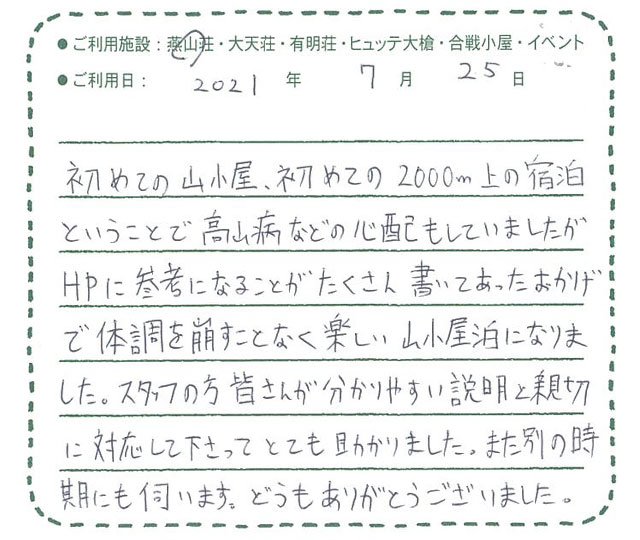 ● ご利用施設：燕山荘・大天荘・有明荘・ヒュッテ大槍・合戦小屋・イベント
● ご利用日： 2021 年 7 月 25 日
初めての山小屋、初めての2000m上の宿泊
ということで高山病などの心配もしていましたが
HPに参考になることがたくさん書いてあったおかげ
で体調を崩すことなく楽しい山小屋泊になりま
した。スタッフの方皆さんが分かりやすい説明と親切
に対応して下さってとても助かりました。また別の時
期にも伺います。どうもありがとうございました。